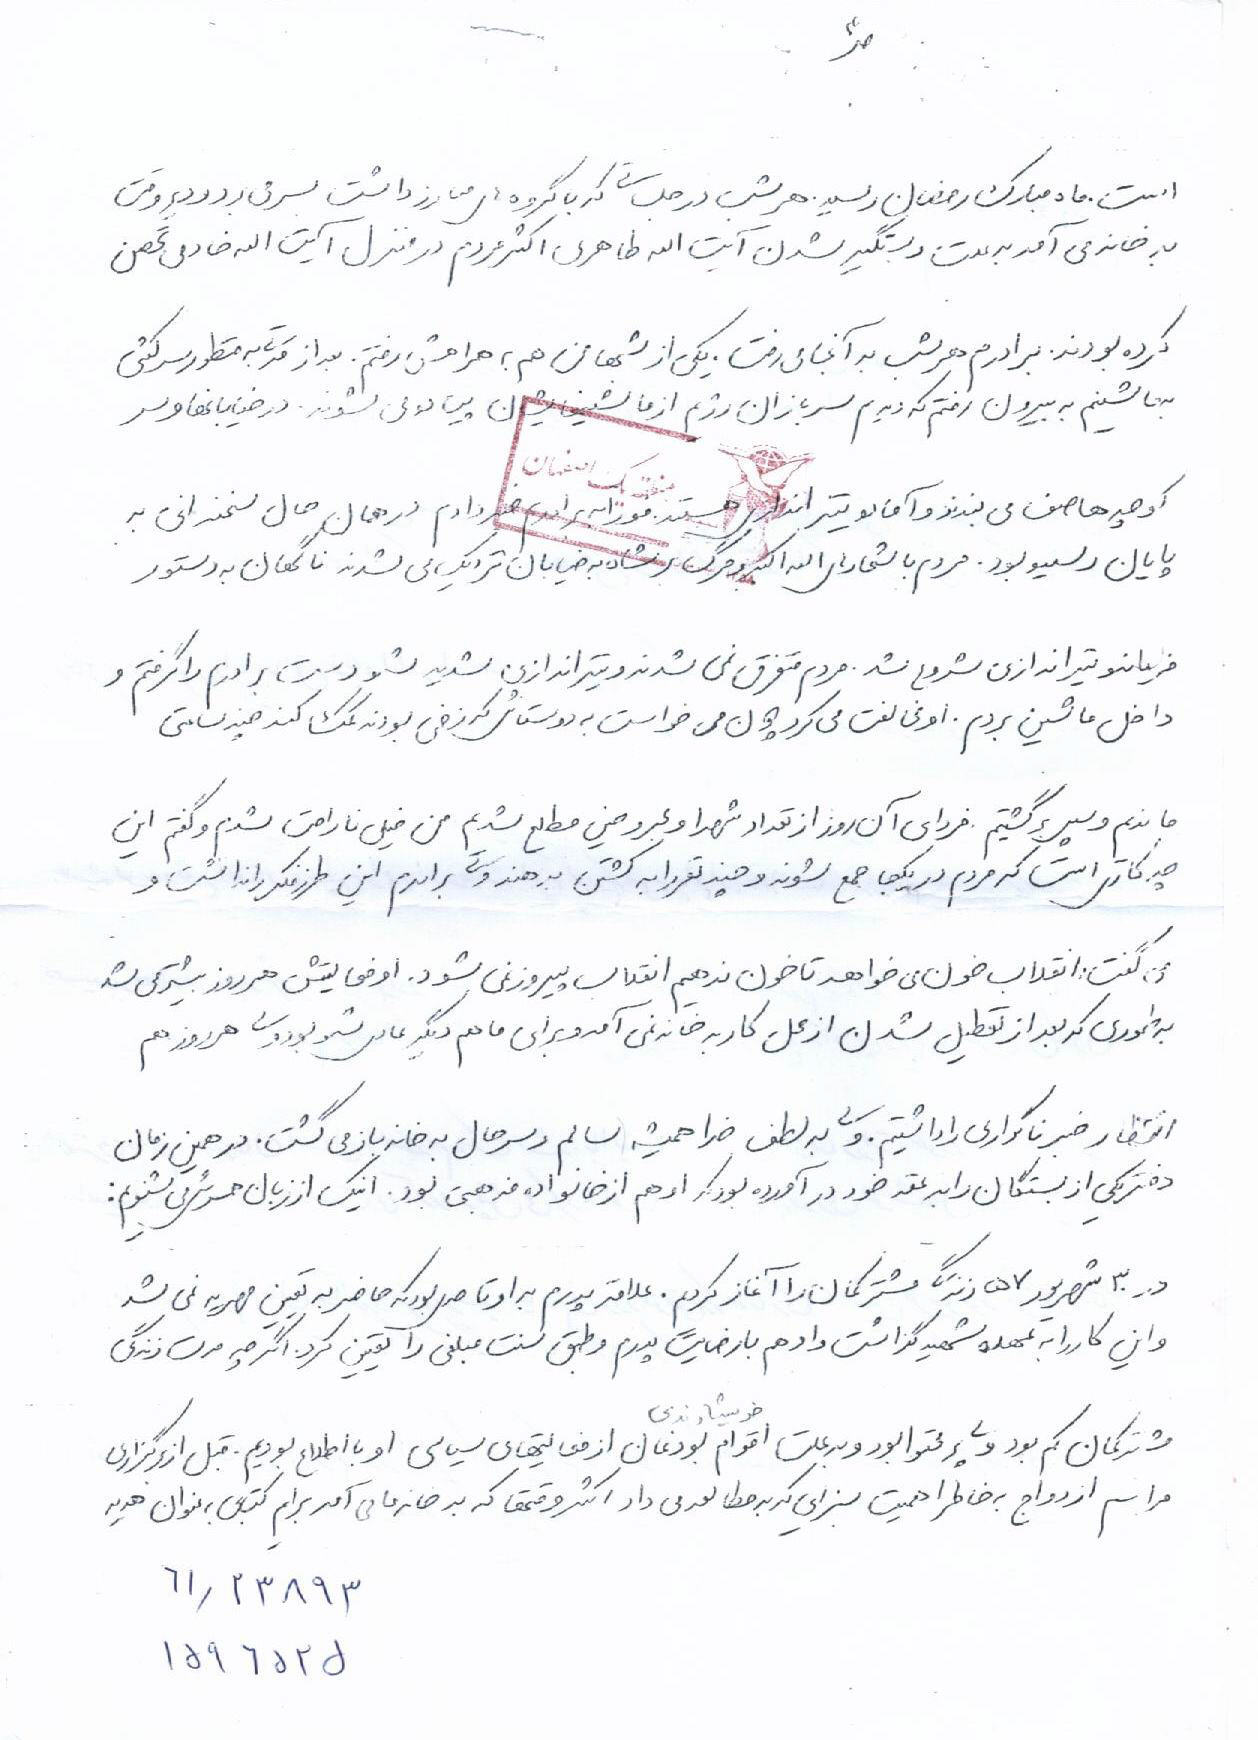 ص۳
است. ماه مبارک رمضان رسید. هر شب در جلساتی که با گروه های مبارز داشت بسر می برد و دیر وقت
به خانه می آمد به علت دستگیر شدن آیت الله طاهری اکثر مردم در منزل آیت الله خادمی تحصن
کرده بودند. برادرم هر شب به آنجا می رفت. یکی از شبها من هم به همراهش رفتم. بعد از مدتی به منظور سرکشی
به ماشینم به بیرون رفتم که دیدم سربازان رژیم از ماشینهایشان پیاده می شوند. در خیابانها و سر
کوچه ها صف می بندند و آماده تیراندازی هستند. فوراً به برادرم خبر دادم در همان حال سخنرانی به
پایان رسیده بود. مردم با شعارهای الله اکبر و مرگ بر شاه به خیابان نزدیک می شدند ناگهان به دستور
فرمانده تیراندازی شروع شد. مردم متفرق نمی شدند و تیراندازی شدید شد و دست برادرم را گرفتم و
داخل ماشین بردم. او مخالفت می کرد چون می خواست به دوستانش که زخمی بودند کمک کند چند ساعتی
ماندیم و سپس برگشتیم. فردای آن روز از تعداد شهدا و مجروحین مطلع شدیم من خیلی ناراحت شدم و گفتم این
چه کاری است که مردم در یکجا جمع شوند و چند نفر را به کشتن بدهند ولی برادرم این طرز فکر را نداشت و
می گفت: انقلاب خون می خواهد تا خون ندهیم انقلاب پیروز نمی شود. او فعالیتش هر روز بیشتر می شد
به طوری که بعد از تعطیل شدن از محل کار به خانه نمی آمد و برای ما هم دیگر عادی شده بود ولی هر روز هم
انتظار خبر ناگواری را داشتیم. ولی به لطف خدا همیشه سالم و سرحال به خانه باز می گشت. در همین زمان
دختر یکی از بستگان را به عقد خود در آورده بود که او هم از خانواده مذهبی بود. اینک از زبان همسرش می شنویم:
در ۳۰ شهریور ۵۷ زندگی مشترکمان را آغاز کردیم. علاقه پدرم به او تا حدی بود که حاضر به تعیین مهریه نمی شد
و این کار را به عهده شهید گذاشت و او هم با رضایت پدرم و طبق سنت مبلغی را تعیین کرد. اگر چه مدت زندگی
خویشاوندی
مشترکمان کم بود ولی پر محتوا بود و به علت اقوام بودنمان از فعالیتهای سیاسی او با اطلاع بودیم. قبل از برگزاری
مراسم ازدواج به خاطر اهمیت بسزایی که به مطالعه می داد اکثر وقتها که به خانه ما می آمد برایم کتابی به عنوان هدیه
منطقه یک اصفهان
۶۱/۲۳۸۹۳
۱۵۹۶۵۲۵